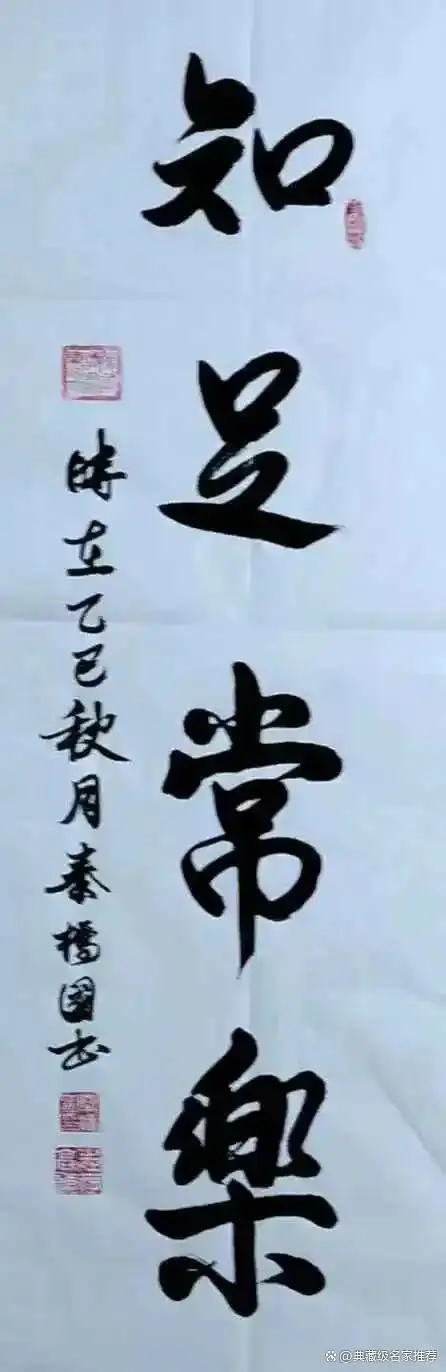 知足常樂
時在乙巳秋月秦橋國书
@典藏级名家推荐